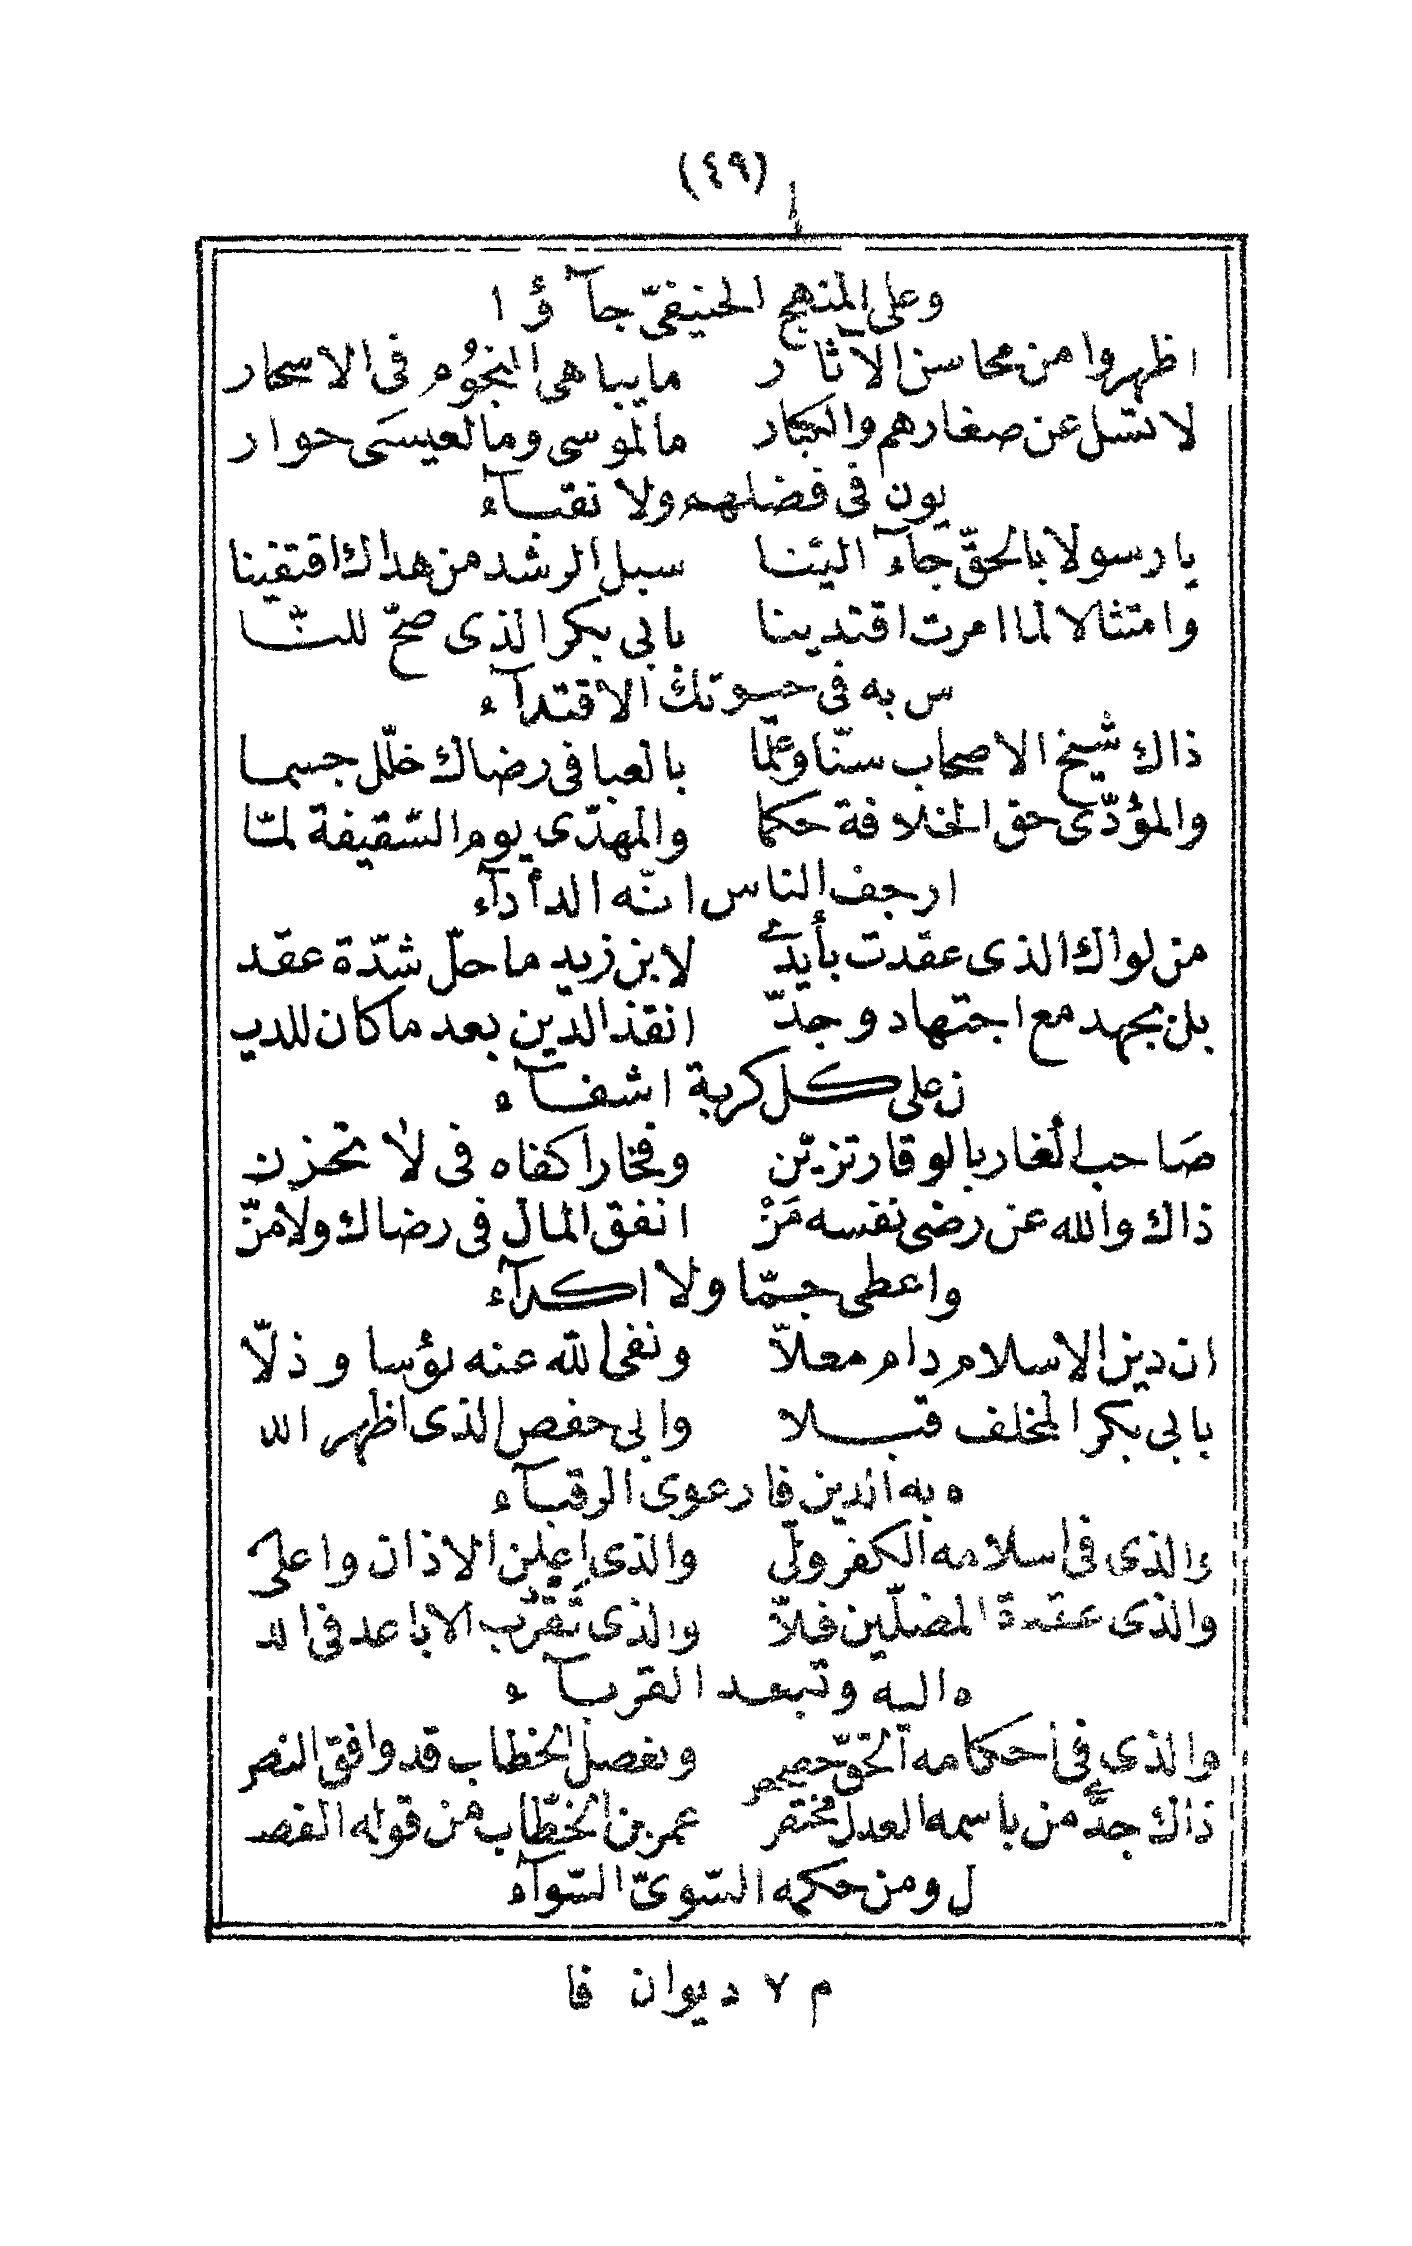 (٤٩)
وعلى المنهج الحنيفىّ جآؤا
اظهروا من محاسن الآثار مايباهى النجوُم فى الاسحار
لا تسل عن صغارهم والكبار مالموسى ومالعيسَى حوار
يون فى فضلهم ولا نقبآء
يا رسولا بالحقّ جآء الينا سبل الرشد من هداك اقتفينا
وامتثالا لما امرت اقتدينا بابى بكر الذى صحّ للنّا
س به فى حيوتك الاقتدآء
ذاك شيخ الاصحاب سنّا وعلما بالعبا فى رضاك خلّل جسما
والمؤدّى حق الخلافة حكما والمهدّى يوم السّقيفة لمّا
ارجف الناس انّه الدأدآء
من لواك الذى عقدت بأيدے لابن زيد ماحلّ شدّة عقد
بل بجهد مع اجتهاد وجدّ انقذ الدين بعد ماكان للدي
ن على كل كربة اشفآء
صَاحب الغار بالوقار تزيّن وفخارا كفاه فى لا تحزن
ذاك والله عن رضى نفسه مَنْ انفق المال فى رضاك ولا منّ
واعطى جمّا ولا اكدآء
ان دين الاسلام دام معلاّ ونفى الله عنه بؤسا وذلّا
بابى بكر المخلف قبلا وابى حفص الذى اظهر الله
ه به الدين فارعوى الرقبآء
والذى فى اسلامه الكفر ولّى والذى اعلن الاذان واعلى
والذى عقدة المضلّين فلاّ والذى تَقْرُب الاباعد فى الله
ه اليه وتبعد القربآء
والذى فى احكامه الحقّ حصحص وبفصل الخطاب قد وافق النص
ذاك جدّے من باسمه العدل مختص عمر بن الخطّاب من قوله الفص
ل ومن حكمه السّوىّ السّوآء
م ٧ ديوان فا